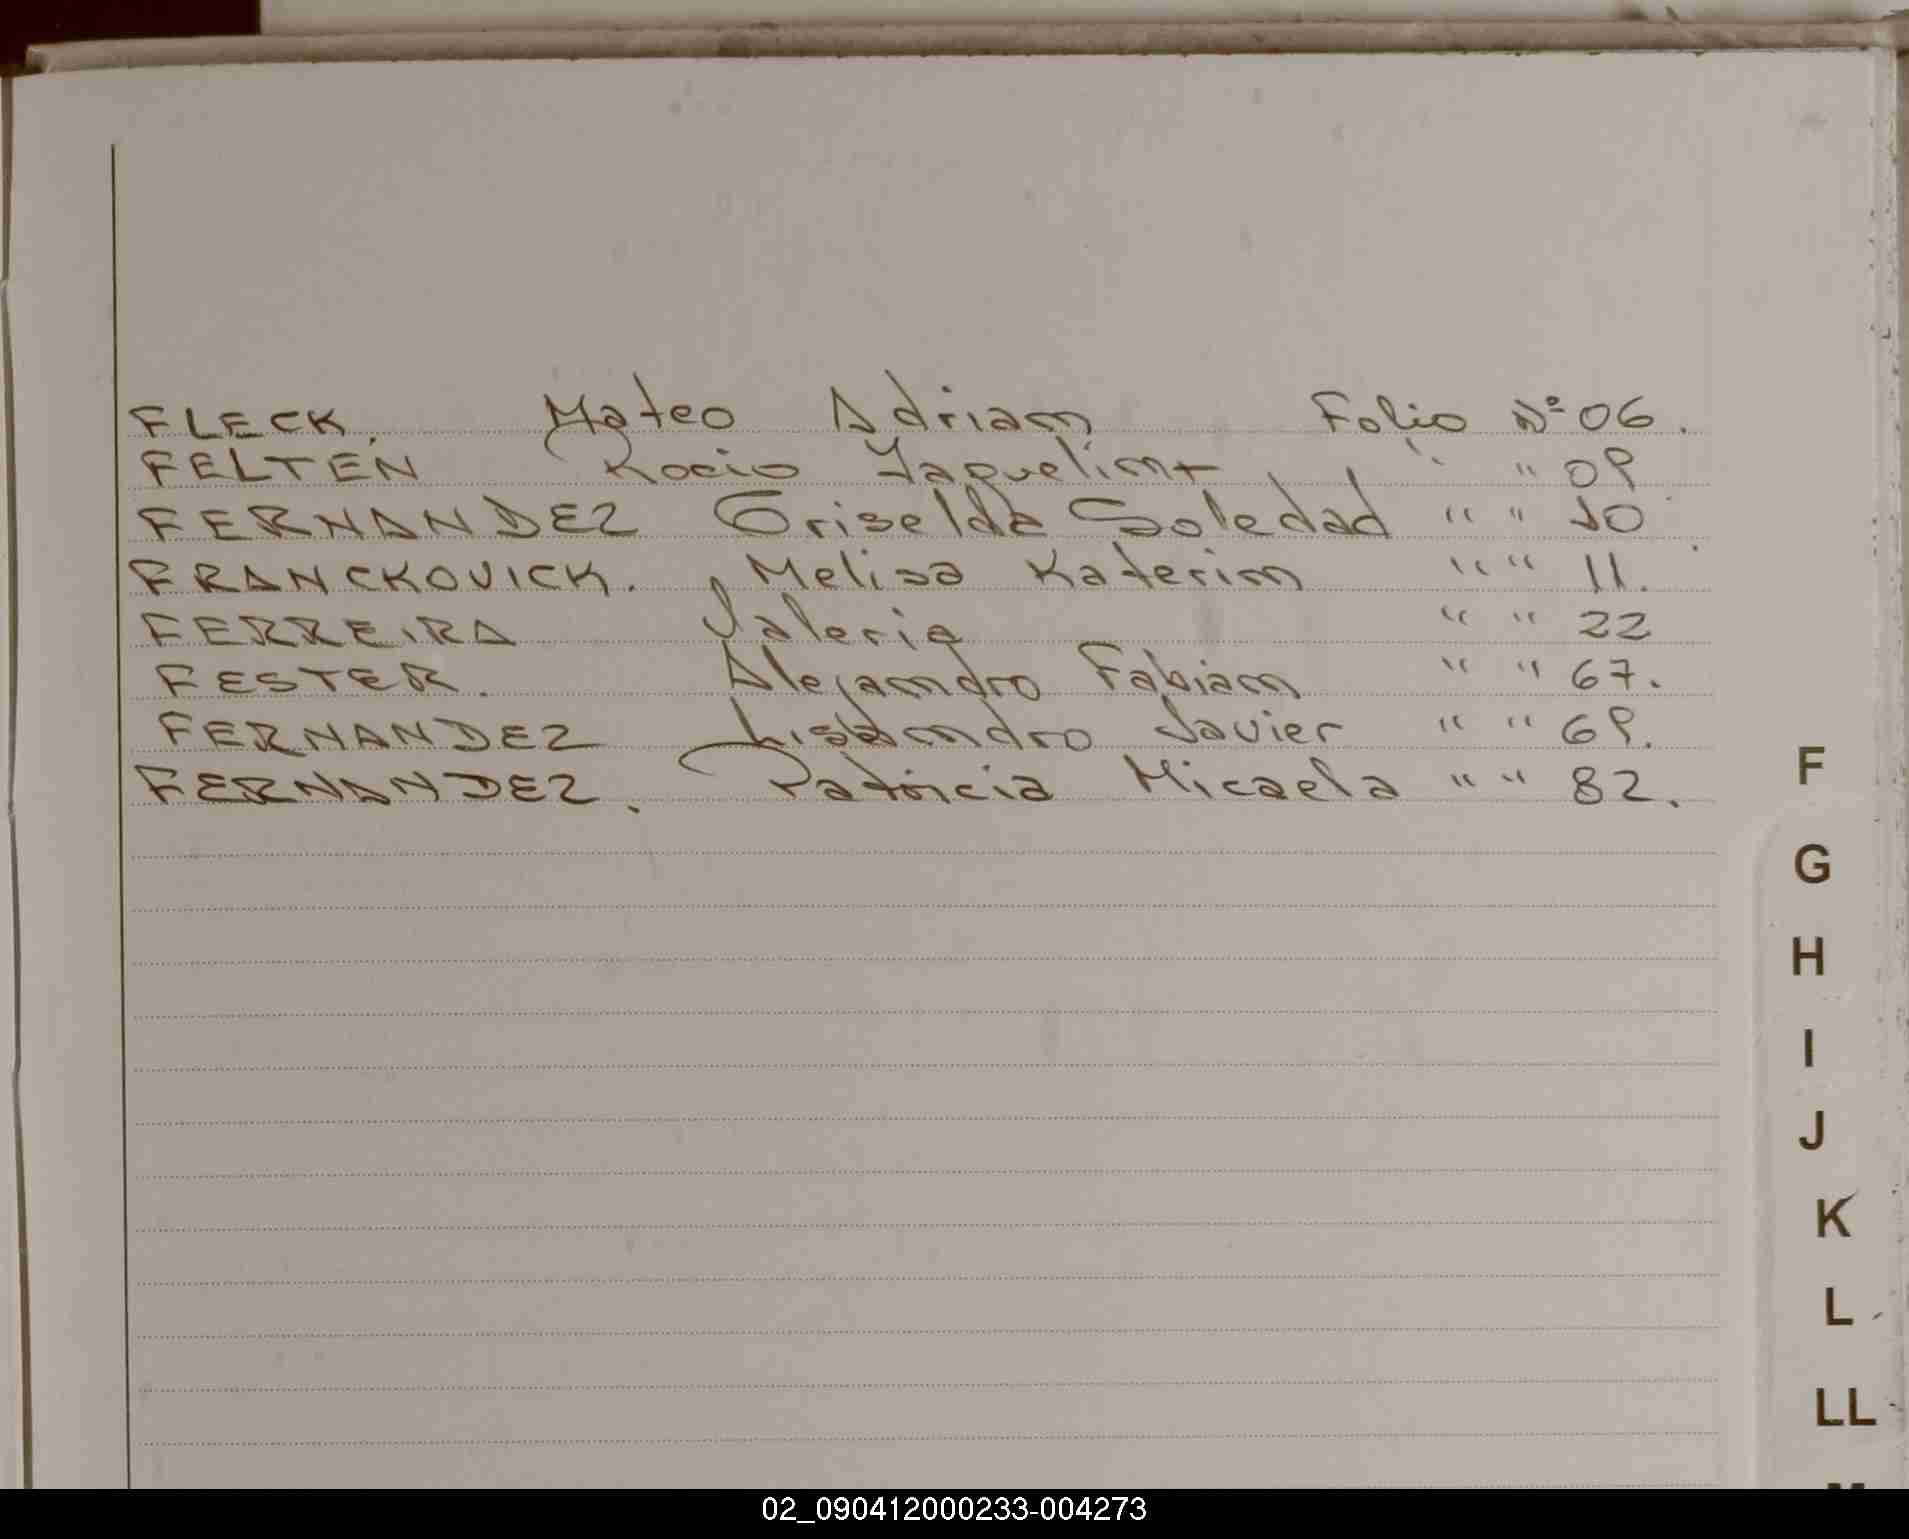 FLECK. Mateo Adrian Folio Nº 06.
FELTEN Rocio Yaqueline " " 09
FERNANDEZ Griselda Soledad " " 10
FRANCKOVICK. Melisa Katerin " " 11.
FERREIRA Valeria " " 22
FESTER. Alejandro Fabian " " 67.
FERNANDEZ Lisandro Javier " " 69.
FERNANDEZ. Patricia Micaela " " 82.
F
G
H
I
J
K
L
LL
02_090412000233-004273